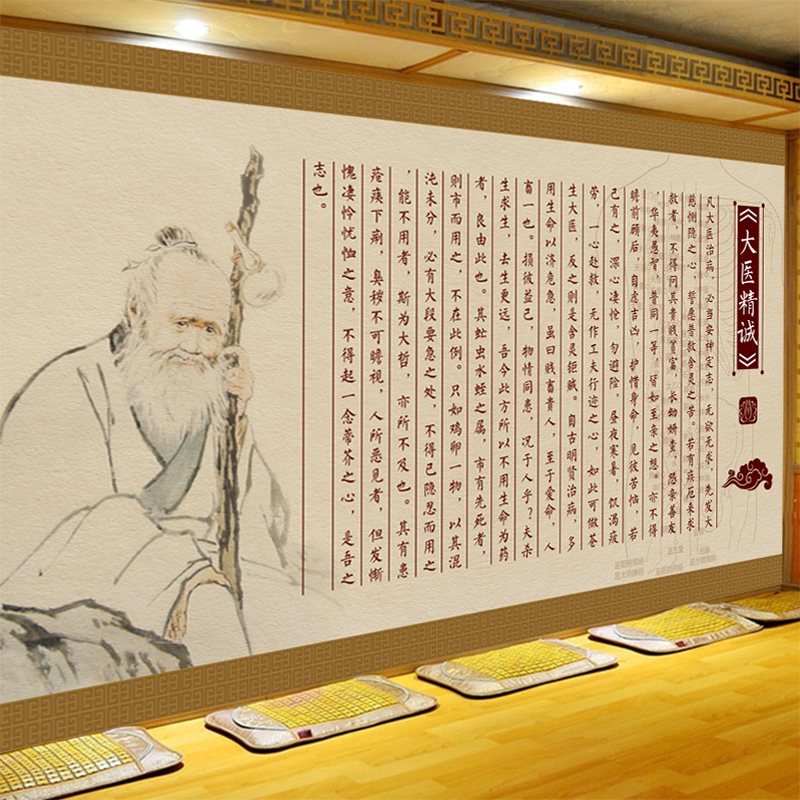 《大医精诚》
凡大医治病，必当安神定志，无欲无求，先发大
慈恻隐之心，誓愿普救含灵之苦。若有疾厄来求
救者，不得问其贵贱贫富，长幼妍蚩，怨亲善友
，华夷愚智，普同一等，皆如至亲之想。亦不得
瞻前顾后，自虑吉凶，护惜身命，见彼苦恼，若
己有之，深心凄怆，勿避险，昼夜寒暑，饥渴疲
劳，一心赴救，无作工夫行迹之心，如此可做苍
生大医，反之则是含灵钜贼。自古明贤治病，多
用生命以济危急，虽曰贱畜贵人，至于爱命，人
畜一也。损彼益己，物情同患，况于人乎？夫杀
生求生，去生更远，吾今此方所以不用生命为药
者，良由此也。其虻虫水蛭之属，市有先死者，
则市而用之，不在此例。只如鸡卵一物，以其混
沌未分，必有大段要急之处，不得已隐忍而用之
，能不用者，斯为大哲，亦所不及也。其有患
疮痍下痢，臭秽不可瞻视，人所恶见者，但发惭
愧凄怜忧恤之意，不得起一念蒂芥之心，是吾之
志也。